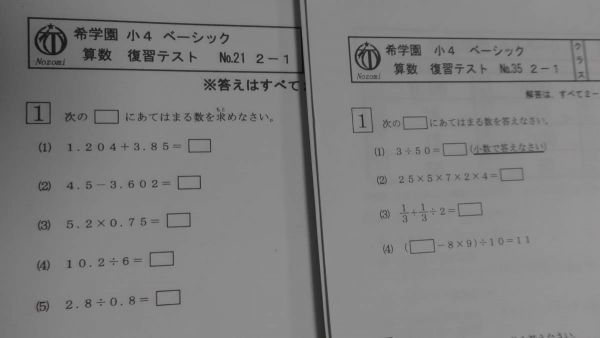 希学園 小4 ベーシック
算数 復習テスト No.21 2-1
Nozomi
※答えはすべて
1 次の□にあてはまる数を求めなさい。
(1) 1.204+3.85=□
(2) 4.5-3.602=□
(3) 5.2×0.75=□
(4) 10.2÷6=□
(5) 2.8÷0.8=□
希学園 小4 ベーシック
算数 復習テスト No.35 2-1
Nozomi
クラス
解答は、すべて2-
1 次の□にあてはまる数を答えなさい。
(1) 3÷50=□(小数で答えなさい)
(2) 25×5×7×2×4=□
(3) 1/3+1/3÷2=□
(4) (□-8×9)÷10=11